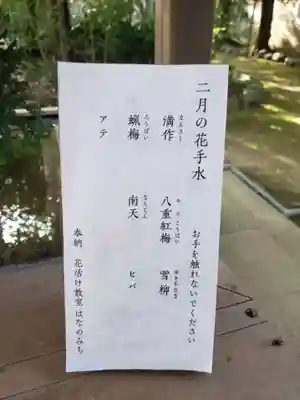 二月の花手水
お手を触れないでください
まんさく
満作
や え こうばい
八重紅梅
ゆきやなぎ
雪柳
ろうばい
蝋梅
なんてん
南天
ヒバ
アテ
奉納 花活け教室 はなのみち